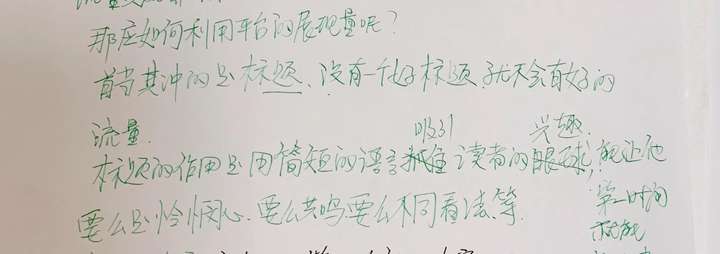 那应如何利用平台的展现量呢?
首当其冲的是标题、没有一个好标题就不会有好的
流量.
吸引 兴趣.
标题的作用是用简短的语言抓住读者的眼球,能让他
第一时间
要么是怜悯心.要么共鸣要么不同看法等.
就能